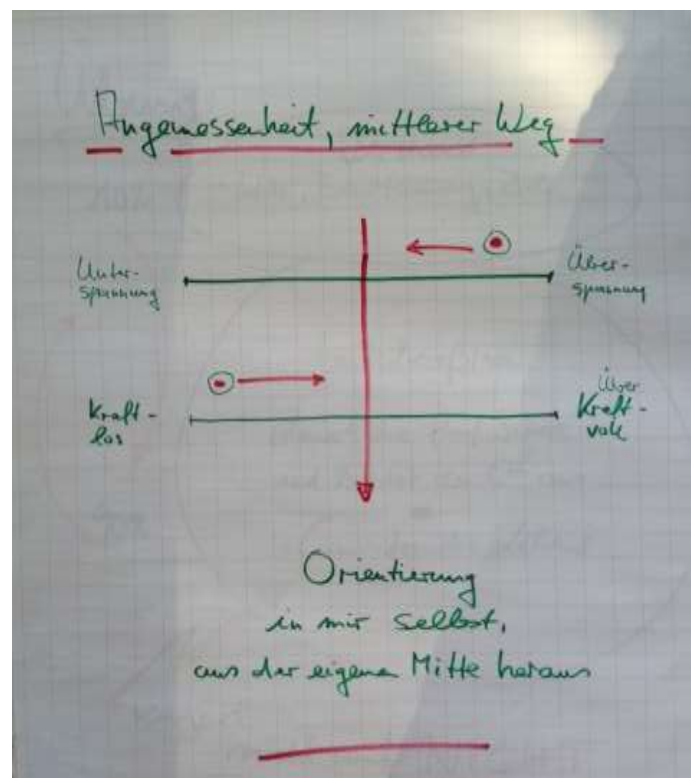 Angemessenheit, mittlerer Weg
Unter-
spannung
Über-
spannung
Kraft-
los
Über
Kraft-
voll
Orientierung
in mir selbst,
aus der eigenen Mitte heraus